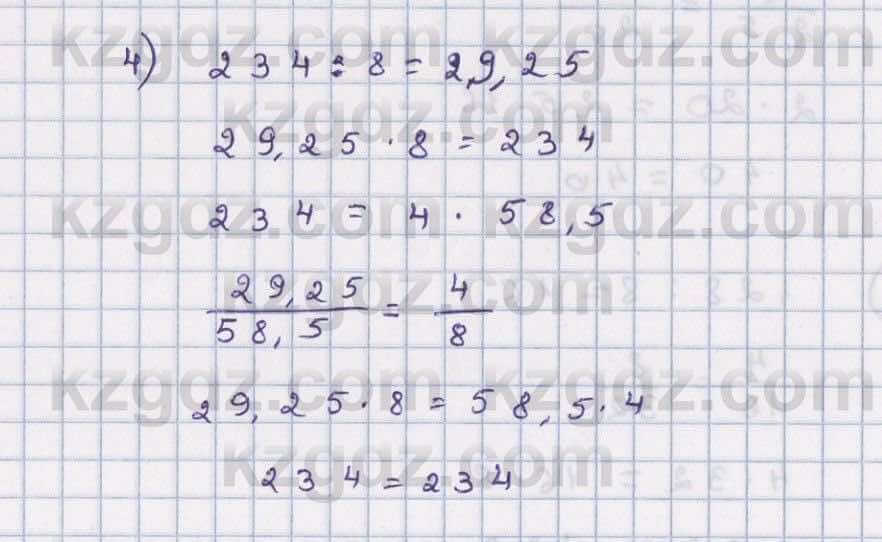 kzgdz.com kzgdz.com
4) 234 : 8 = 29,25
kzgdz.com
29,25 · 8 = 234
kzgdz.com kzgdz.com
234 = 4 · 58,5
kzgdz.com
29,25/58,5 = 4/8
kzgdz.com kzgdz.com
29,25 · 8 = 58,5 · 4
kzgdz.com
234 = 234